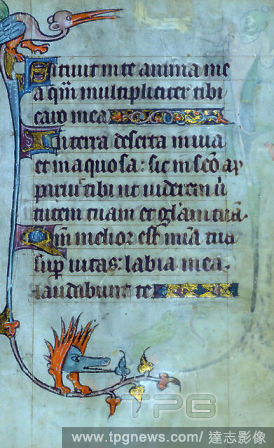 Sitiuit in te anima me
a qm multipliciter tibi
caro mea
In terra deserta inuia
et inaquosa: sic in sco ap
parui tibi ut uiderem uir
tutem tuam et gliam tuam.
Qm melior est mia tua
sup uitas: labia mea
laudabunt te
TPG
www.tpgnews.com / 達志影像